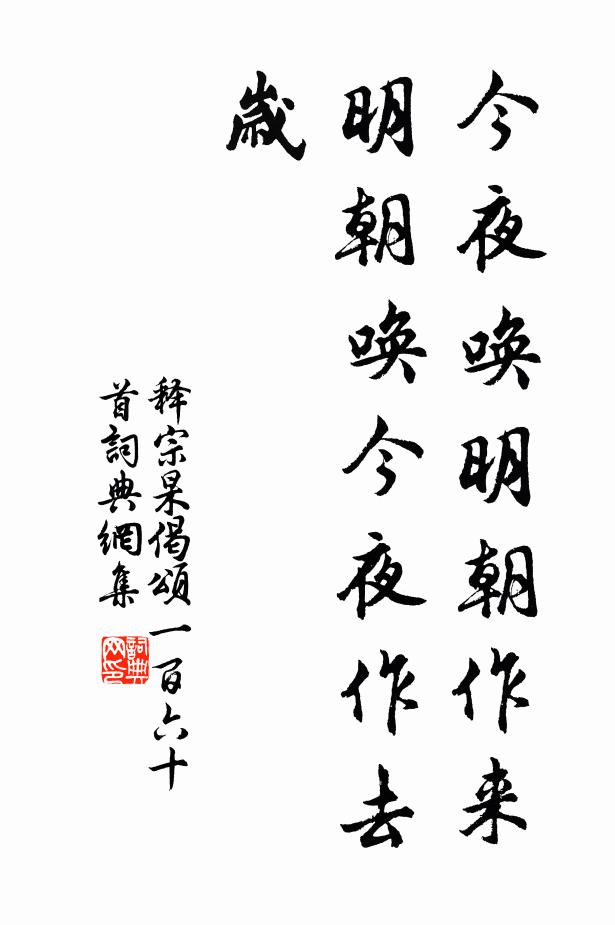 今夜唤明朝作来
明朝唤今夜作去
歲
释宗杲偈頌一百六十
首詞典網集
詞典
网印